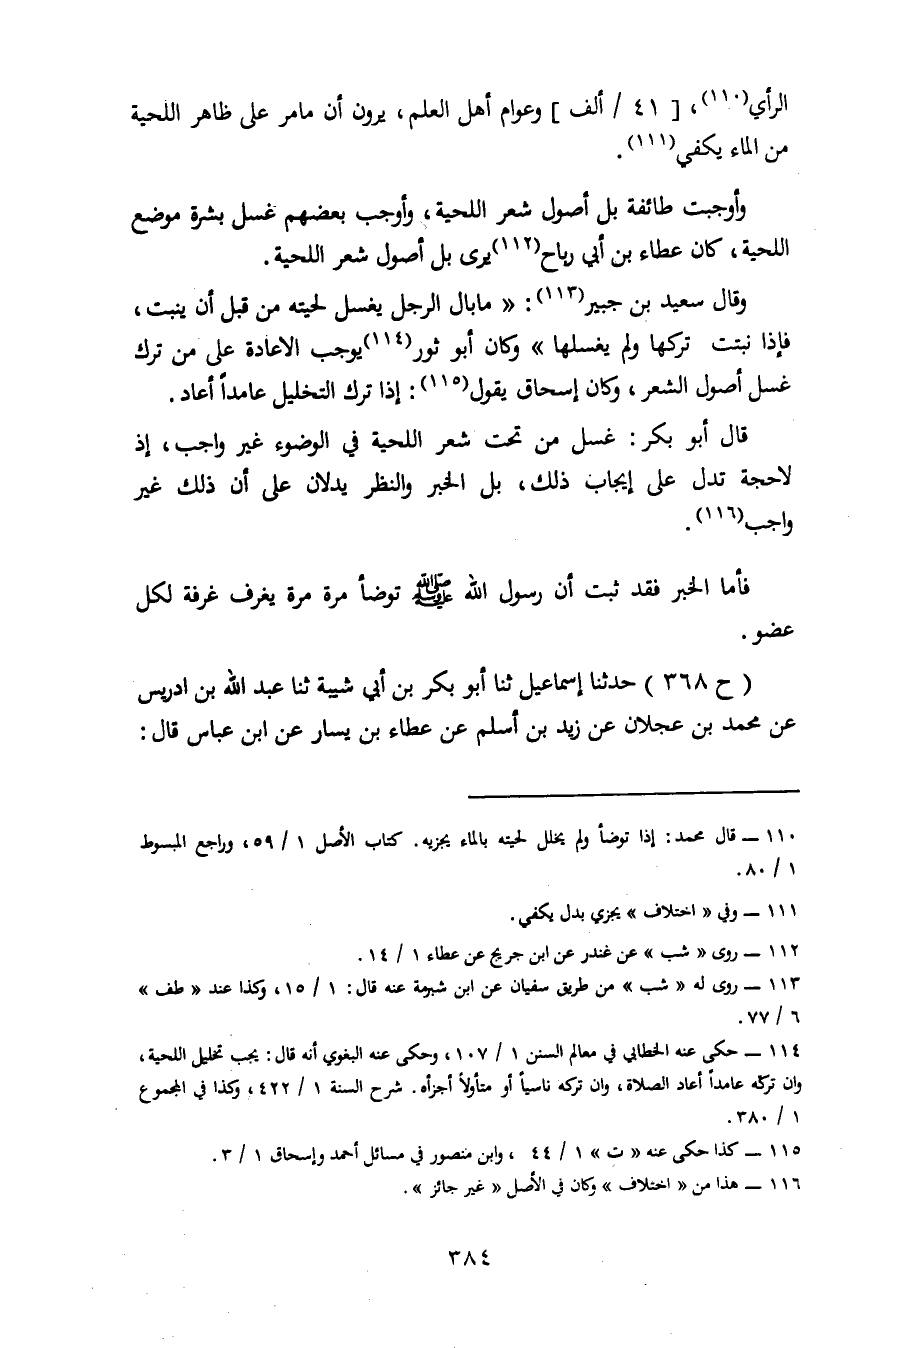 الرأي(١١٠)، [ ٤١ / ألف ] وعوام أهل العلم، يرون أن مامر على ظاهر اللحية
من الماء يكفي(١١١).
وأوجبت طائفة بل أصول شعر اللحية، وأوجب بعضهم غسل بشرة موضع
اللحية، كان عطاء بن أبي رباح(١١٢)يرى بل أصول شعر اللحية.
وقال سعيد بن جبير(١١٣): « مابال الرجل يغسل لحيته من قبل أن ينبت،
فإذا نبتت تركها ولم يغسلها » وكان أبو ثور(١١٤)يوجب الاعادة على من ترك
غسل أصول الشعر، وكان إسحاق يقول(١١٥): إذا ترك التخليل عامداً أعاد.
قال أبو بكر: غسل من تحت شعر اللحية في الوضوء غير واجب، إذ
لاحجة تدل على إيجاب ذلك، بل الخبر والنظر يدلان على أن ذلك غير
واجب(١١٦).
فأما الخبر فقد ثبت أن رسول الله ﷺ توضأ مرة مرة يغرف غرفة لكل
عضو.
( ح ٣٦٨ ) حدثنا إسماعيل ثنا أبو بكر بن أبي شيبة ثنا عبد الله بن ادريس
عن محمد بن عجلان عن زيد بن أسلم عن عطاء بن يسار عن ابن عباس قال:
١١٠ ــ قال محمد: إذا توضأ ولم يخلل لحيته بالماء يجزيه. كتاب الأصل ١ / ٥٩، وراجع المبسوط
١ / ٨٠.
١١١ ــ وفي « اختلاف » يجزي بدل يكفي.
١١٢ ــ روى « شب » عن غندر عن ابن جريج عن عطاء ١ / ١٤.
١١٣ ــ روى له « شب » من طريق سفيان عن ابن شبرمة عنه قال: ١ / ١٥، وكذا عند « طف »
٦ / ٧٧.
١١٤ ــ حكى عنه الخطابي في معالم السنن ١ / ١٠٧، وحكى عنه البغوي أنه قال: يجب تخليل اللحية،
وان تركه عامداً أعاد الصلاة، وان تركه ناسياً أو متأولاً أجزأه. شرح السنة ١ / ٤٢٢، وكذا في المجموع
١ / ٣٨٠.
١١٥ ــ كذا حكى عنه « ت » ١ / ٤٤ ، وابن منصور في مسائل أحمد وإسحاق ١ / ٣.
١١٦ ــ هذا من « اختلاف » وكان في الأصل « غير جائز ».
٣٨٤